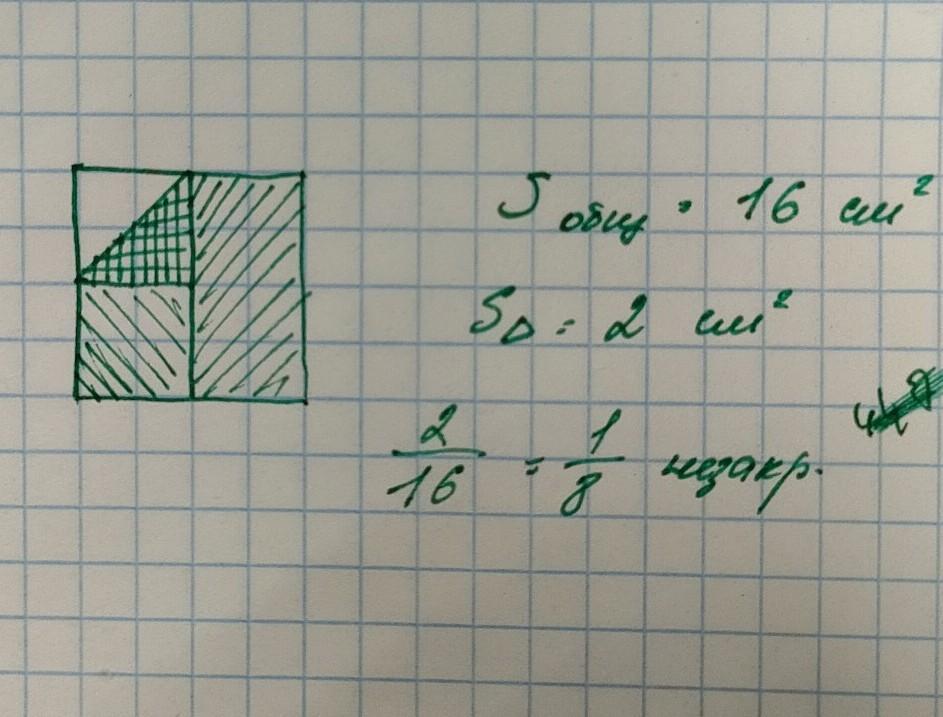 S общ = 16 см²
S△ = 2 см²
2/16 = 1/8 незакр.